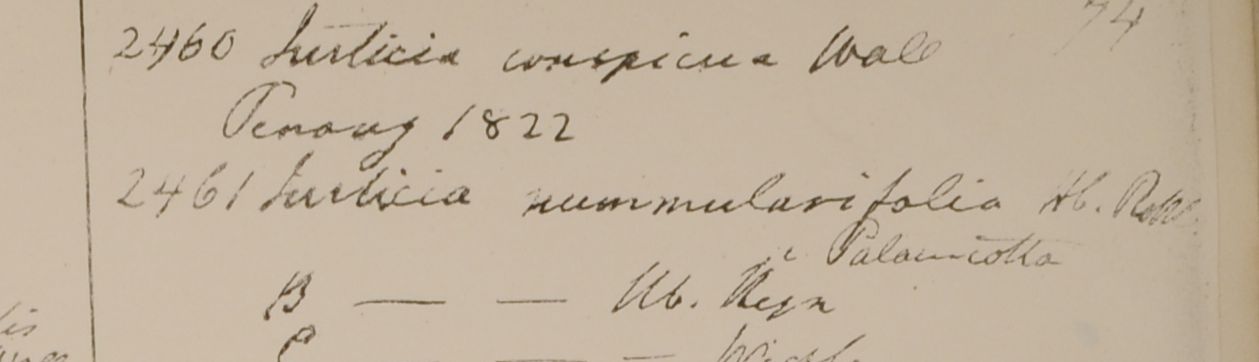 74
2460 Justicia conspicua Wall
Penang 1822
2461 Justicia nummularifolia Hb. Rottl.
è Palamcotta
B — — Hb. Heyn
C — — Wight